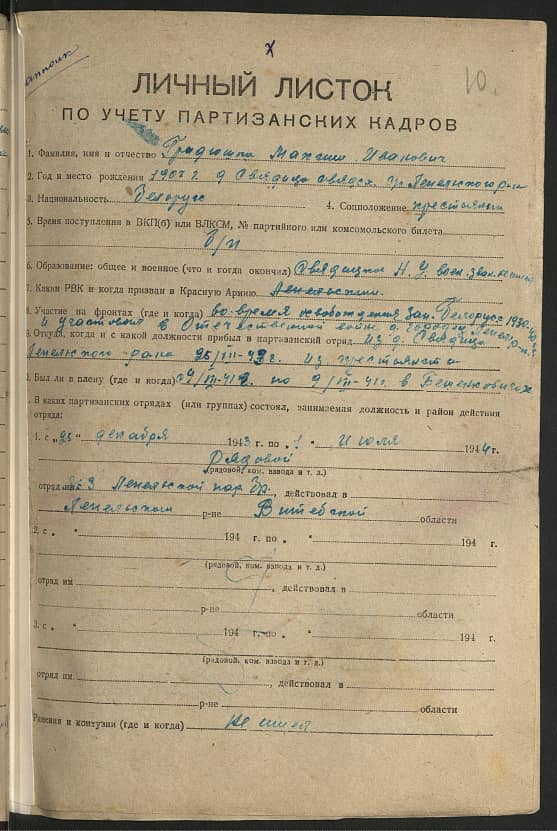 х
10.
ЛИЧНЫЙ ЛИСТОК
ПО УЧЕТУ ПАРТИЗАНСКИХ КАДРОВ
1. Фамилия, имя и отчество Градюшко Максим Иванович
2. Год и место рождения 1907 г. д Свядица Свядск. Лепельского р-на
3. Национальность Белорус 4. Соцположение крестьянин
5. Время поступления в ВКП(б) или ВЛКСМ, № партийного или комсомольского билета
б/п
6. Образование: общее и военное (что и когда окончил) Свядицкая Н. Ш. воен. зван.
7. Каким РВК и когда призван в Красную Армию Лепельским.
8. Участие на фронтах (где и когда) во время освобождения Зап. Белорусс
и участвовал в Отечественной войн.
9. Откуда, когда и с какой должности прибыл в партизанский отряд из д. Свядица
Лепельского р-на 25/XII-43 г. из крестьянства
Был ли в плену (где и когда) по в Бешенковичах
В каких партизанских отрядах (или группах) состоял, занимаемая должность и район действия
отряда:
1. с „25“ декабря 1943 г. по „1“ Июля 1944 г.
Рядовой
(рядовой, ком. взвода и т. д.)
отряд им № 3 Лепельской пар бр., действовал в
Лепельском р-не Витебской области
2. с „ “ 194 г. по „ “ 194 г.
(рядовой, ком. взвода и т. д.)
отряд им , действовал в
р-не области
3. с „ “ 194 г. по „ “ 194 г.
(рядовой, ком. взвода и т. д.)
отряд им , действовал в
р-не области
Ранения и контузии (где и когда) не имел